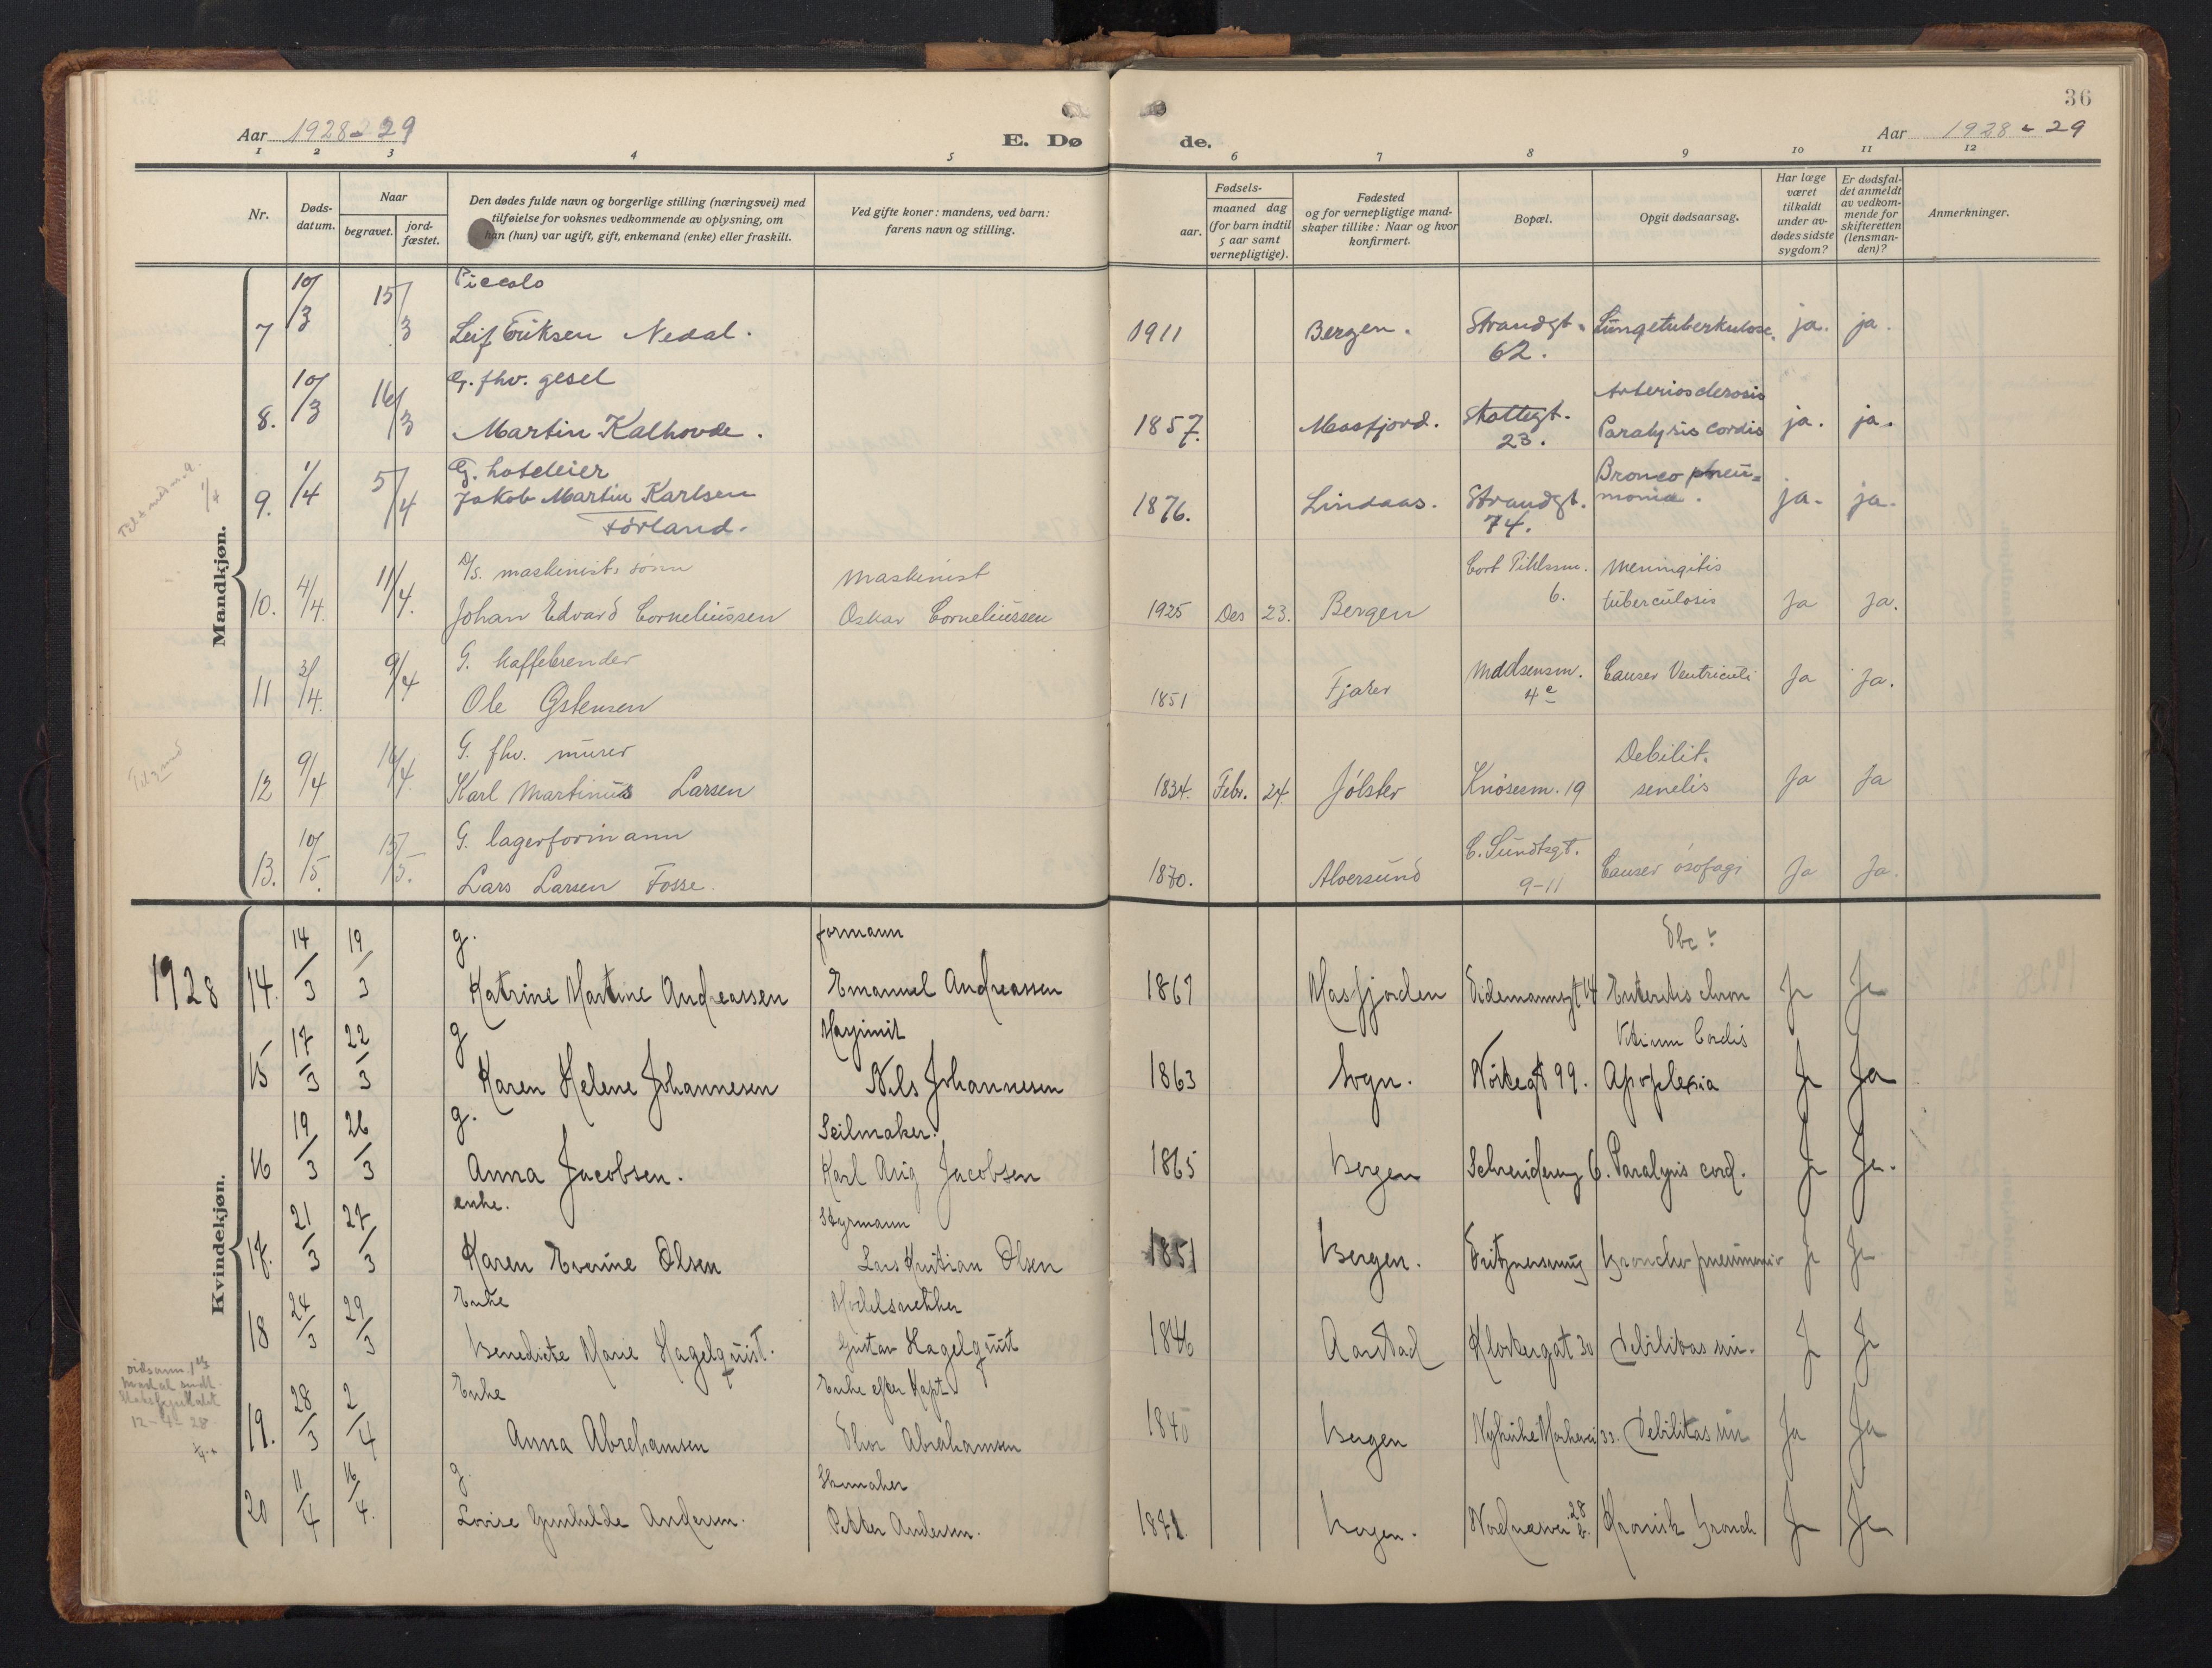 36
Aar 1928-29
E. Dø de.
Aar 1928-29
1 2 3 4 5 6 7 8 9 10 11 12
Nr.
Døds-
datum.
Naar
begravet.
jord-
fæstet.
Den dødes fulde navn og borgerlige stilling (næringsvei) med
tilføielse for voksnes vedkommende av oplysning, om
han (hun) var ugift, gift, enkemand (enke) eller fraskilt.
Ved gifte koner: mandens, ved barn:
farens navn og stilling.
Fødsels-
aar.
maaned dag
(for barn indtil
5 aar samt
vernepligtige).
Fødested
og for vernepligtige mand-
skaper tillike: Naar og hvor
konfirmert.
Bopæl.
Opgit dødsaarsag.
Har læge
været
tilkaldt
under av-
dødes sidste
sygdom?
Er dødsfal-
det anmeldt
av vedkom-
mende for
skifteretten
(lensman-
den)?
Anmerkninger.
Mandkjøn.
Piccolo
7 10/3 15/3 Leif Eriksen Nedal. 1911 Bergen. Strandgt. Lungetuberkulose. ja. ja.
62.
G. fhv. gesel Arteriosclerosis
8. 10/3 16/3 Martin Kalhovde. 1857. Masfjord. Skottegt. Paralysis cordis ja. ja.
23.
G. hoteleier Bronco pneu-
9. 1/4 5/4 Jakob Martin Karlsen 1876. Lindaas. Strandgt. monia. ja. ja.
Förland. 74.
D/S. maskinists sønn maskinist Cort Pihlssm. Meningitis
10. 4/4 11/4. Johan Edvard Corneliussen Oskar Corneliussen 1925 Des 23. Bergen 6. tuberculosis Ja Ja.
G. kaffebrender
11 3/4. 9/4 Ole Gstensen 1851 Fjaler Madsensm. Cancer Ventriculi Ja Ja.
4c
G. fhv. murer Debilit.
12 9/4 14/4. Karl Martinus Larsen 1834. Febr. 24 Jølster Knøsesm. 19 senelis Ja Ja
G. lagerformann C. Sundtsgt.
13. 10/5. 15/5. Lars Larsen Fosse. 1870. Alversund 9-11 Cancer øsofagi Ja Ja.
Kvindekjøn.
1928
g. formann
14. 14/3 19/3 Katrine Martine Andreassen Emanuel Andreassen 1867 Masfjorden Eidemannsgt 14 Enteritis chron Ja Ja
g Maskinist Vitium Cordis
15 17/3 22/3 Karen Helene Johannesen Nils Johannesen 1863 Sogn. Nöstegt 99. Apoplexia Ja Ja
g. Seilmaker.
16 19/3 26/3 Anna Jacobsen. Karl Jacobsen 1865 Bergen 6. Paralysis cord. Ja Ja.
enke. Styrmann
17. 21/3 27/3 Karen Everine Olsen Lars Kristian Olsen 1851 Bergen. Fritznersmug Broncho pneumonie Ja Ja
Enke Modelsnekker
18 24/3 29/3 Benedicte Marie Hagelquist. Gustav Hagelquist 1846 Aarstad Klostergat 30 Debilitas sin. Ja Ja
Enke Enke efter Kapt.
19. 28/3 2/4 Anna Abrahamsen Thor Abrahamsen 1840 Bergen 33. Debilitas sin Ja Ja
g. Skomaker
20 11/4 16/4. Lovise Gunhilde Andersen. Petter Andersen. 1871. Bergen. Nordnesvei 28 b. Kronisk bronch Ja Ja
12-4-28